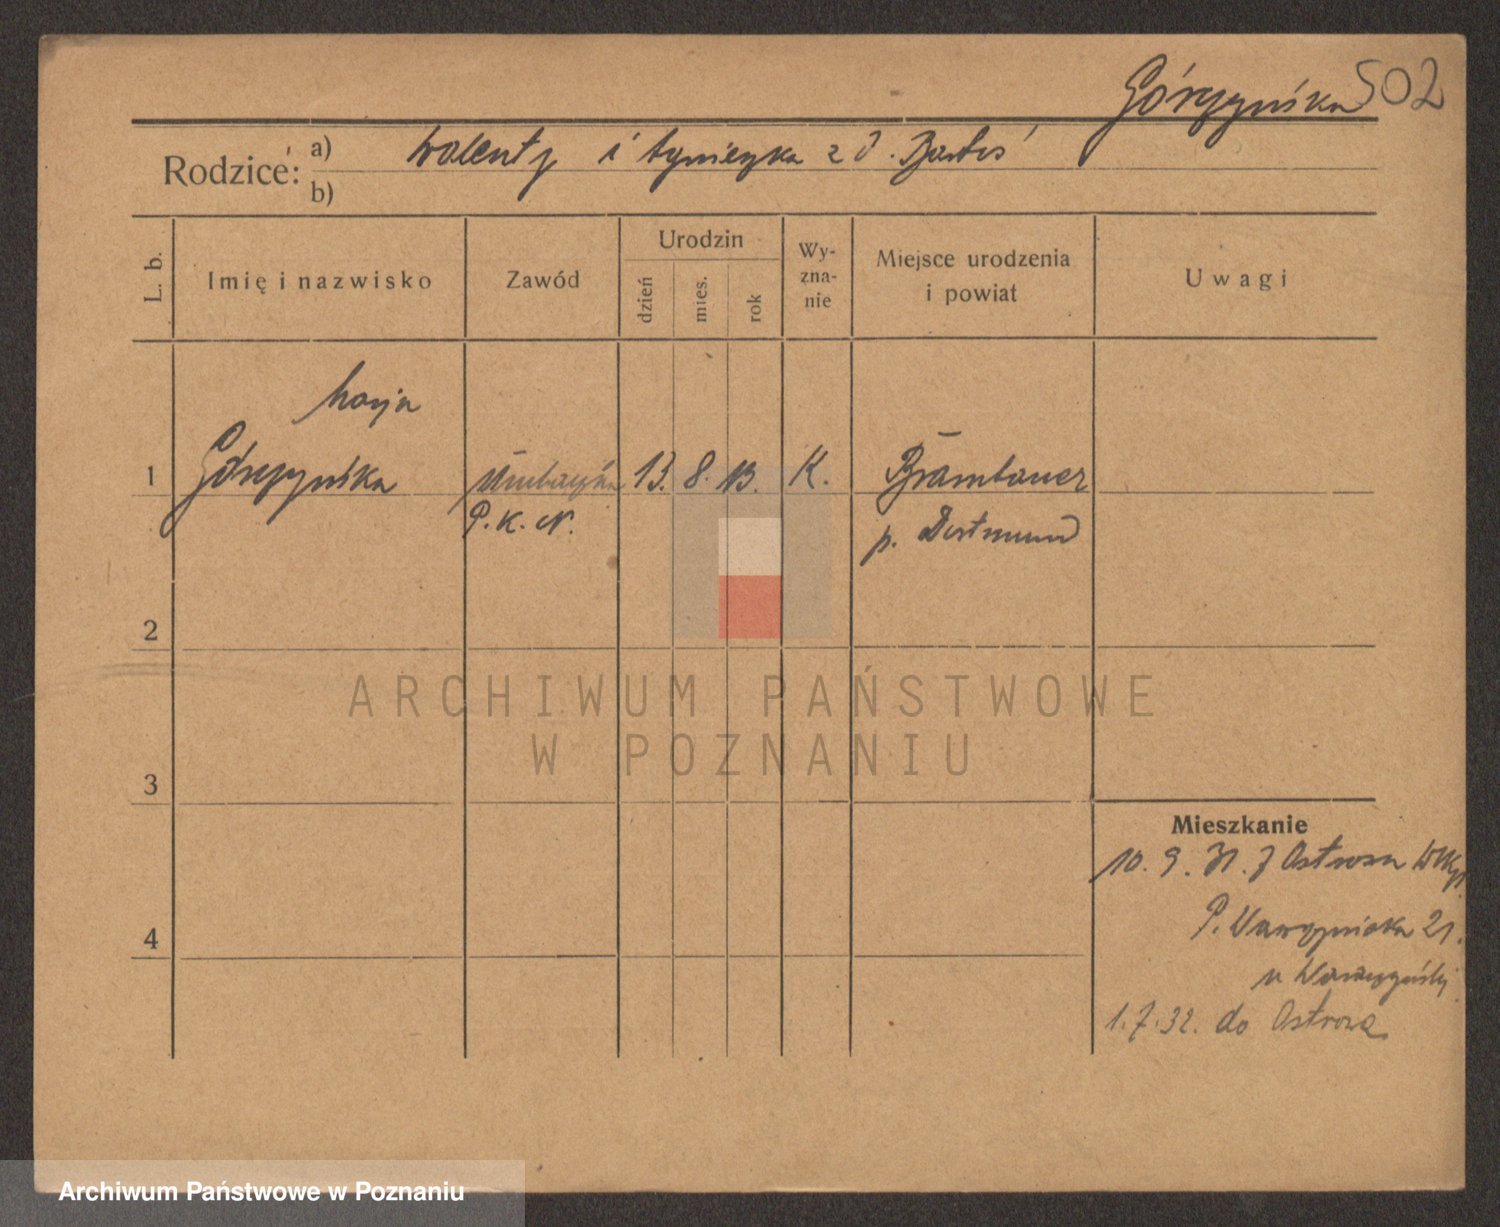 Górzyńska 502
Rodzice: a) Walenty i Agnieszka z d. Bartoś
b)
L. b.
Imię i nazwisko
Zawód
Urodzin
dzień
mies.
rok
Wy-
zna-
nie
Miejsce urodzenia
i powiat
Uwagi
Marja
1 Górzyńska 13. 8. 13. K. Brambauer
P. K. N. p. Dortmund
2
ARCHIWUM PAŃSTWOWE
W POZNANIU
3
Mieszkanie
10. 9. 31. z Ostrowa Wlkp.
P. Wawrzyniaka 21.
u
4
1. 7. 32. do Ostrowa
Archiwum Państwowe w Poznaniu